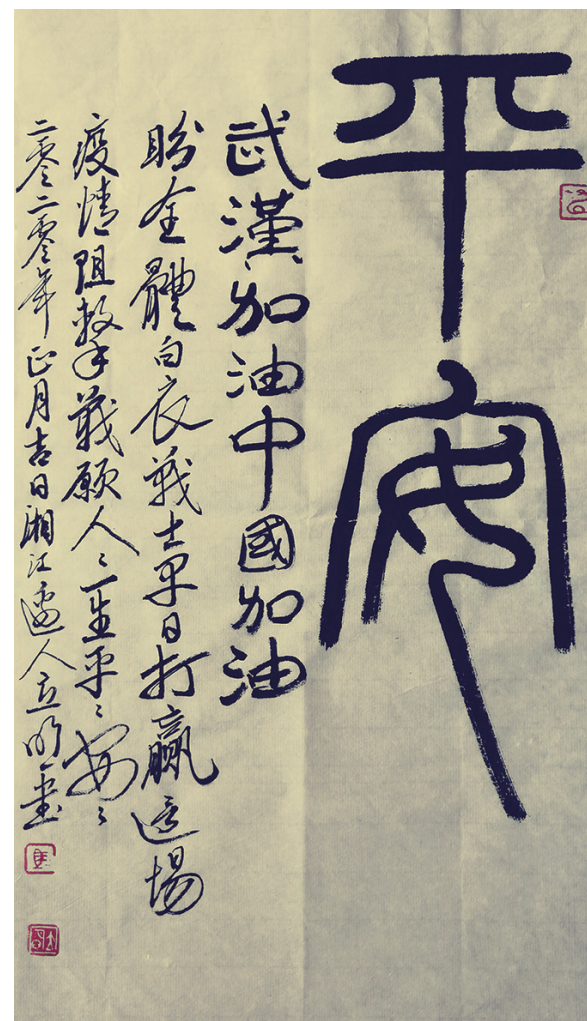 平安
武漢加油中國加油
盼全體白衣戰士早日打贏這場
疫情阻擊戰願人〻一生平〻安〻
二零二零年正月吉日湘江邊人立明書